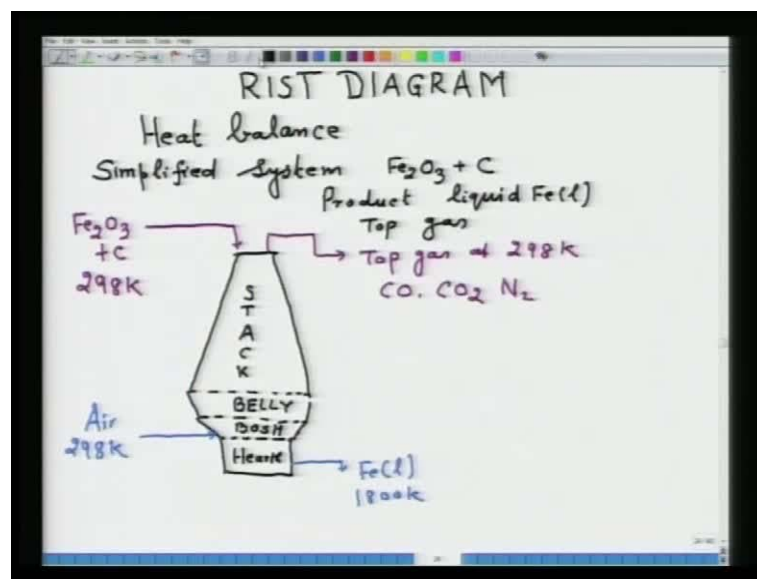 RIST DIAGRAM
Heat balance
Simplified System Fe2O3 + C
Product liquid Fe(l)
Top gas
Fe2O3
+C
298K
Top gas at 298K
CO. CO2 N2
S
T
A
C
K
BELLY
BOSH
Hearth
Air
298K
Fe(l)
1800K